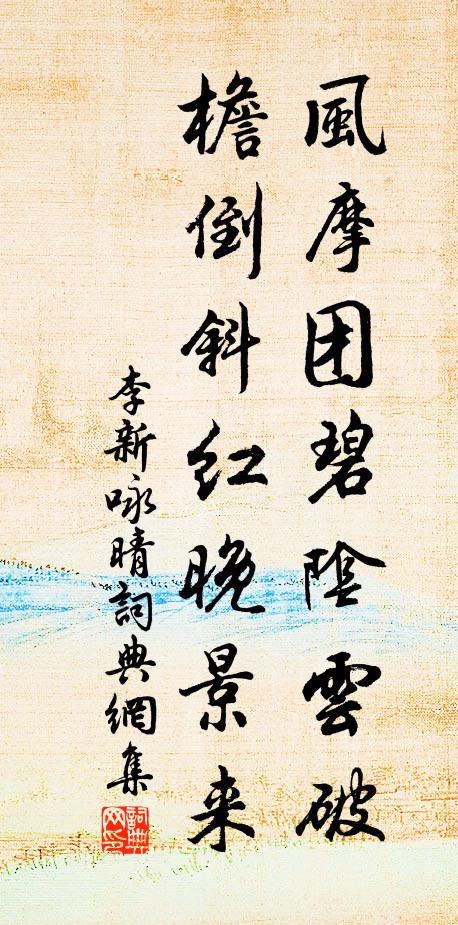 風摩团碧陰雲破
檐倒斜红晚景来
李新咏晴詞典網集
詞典网印